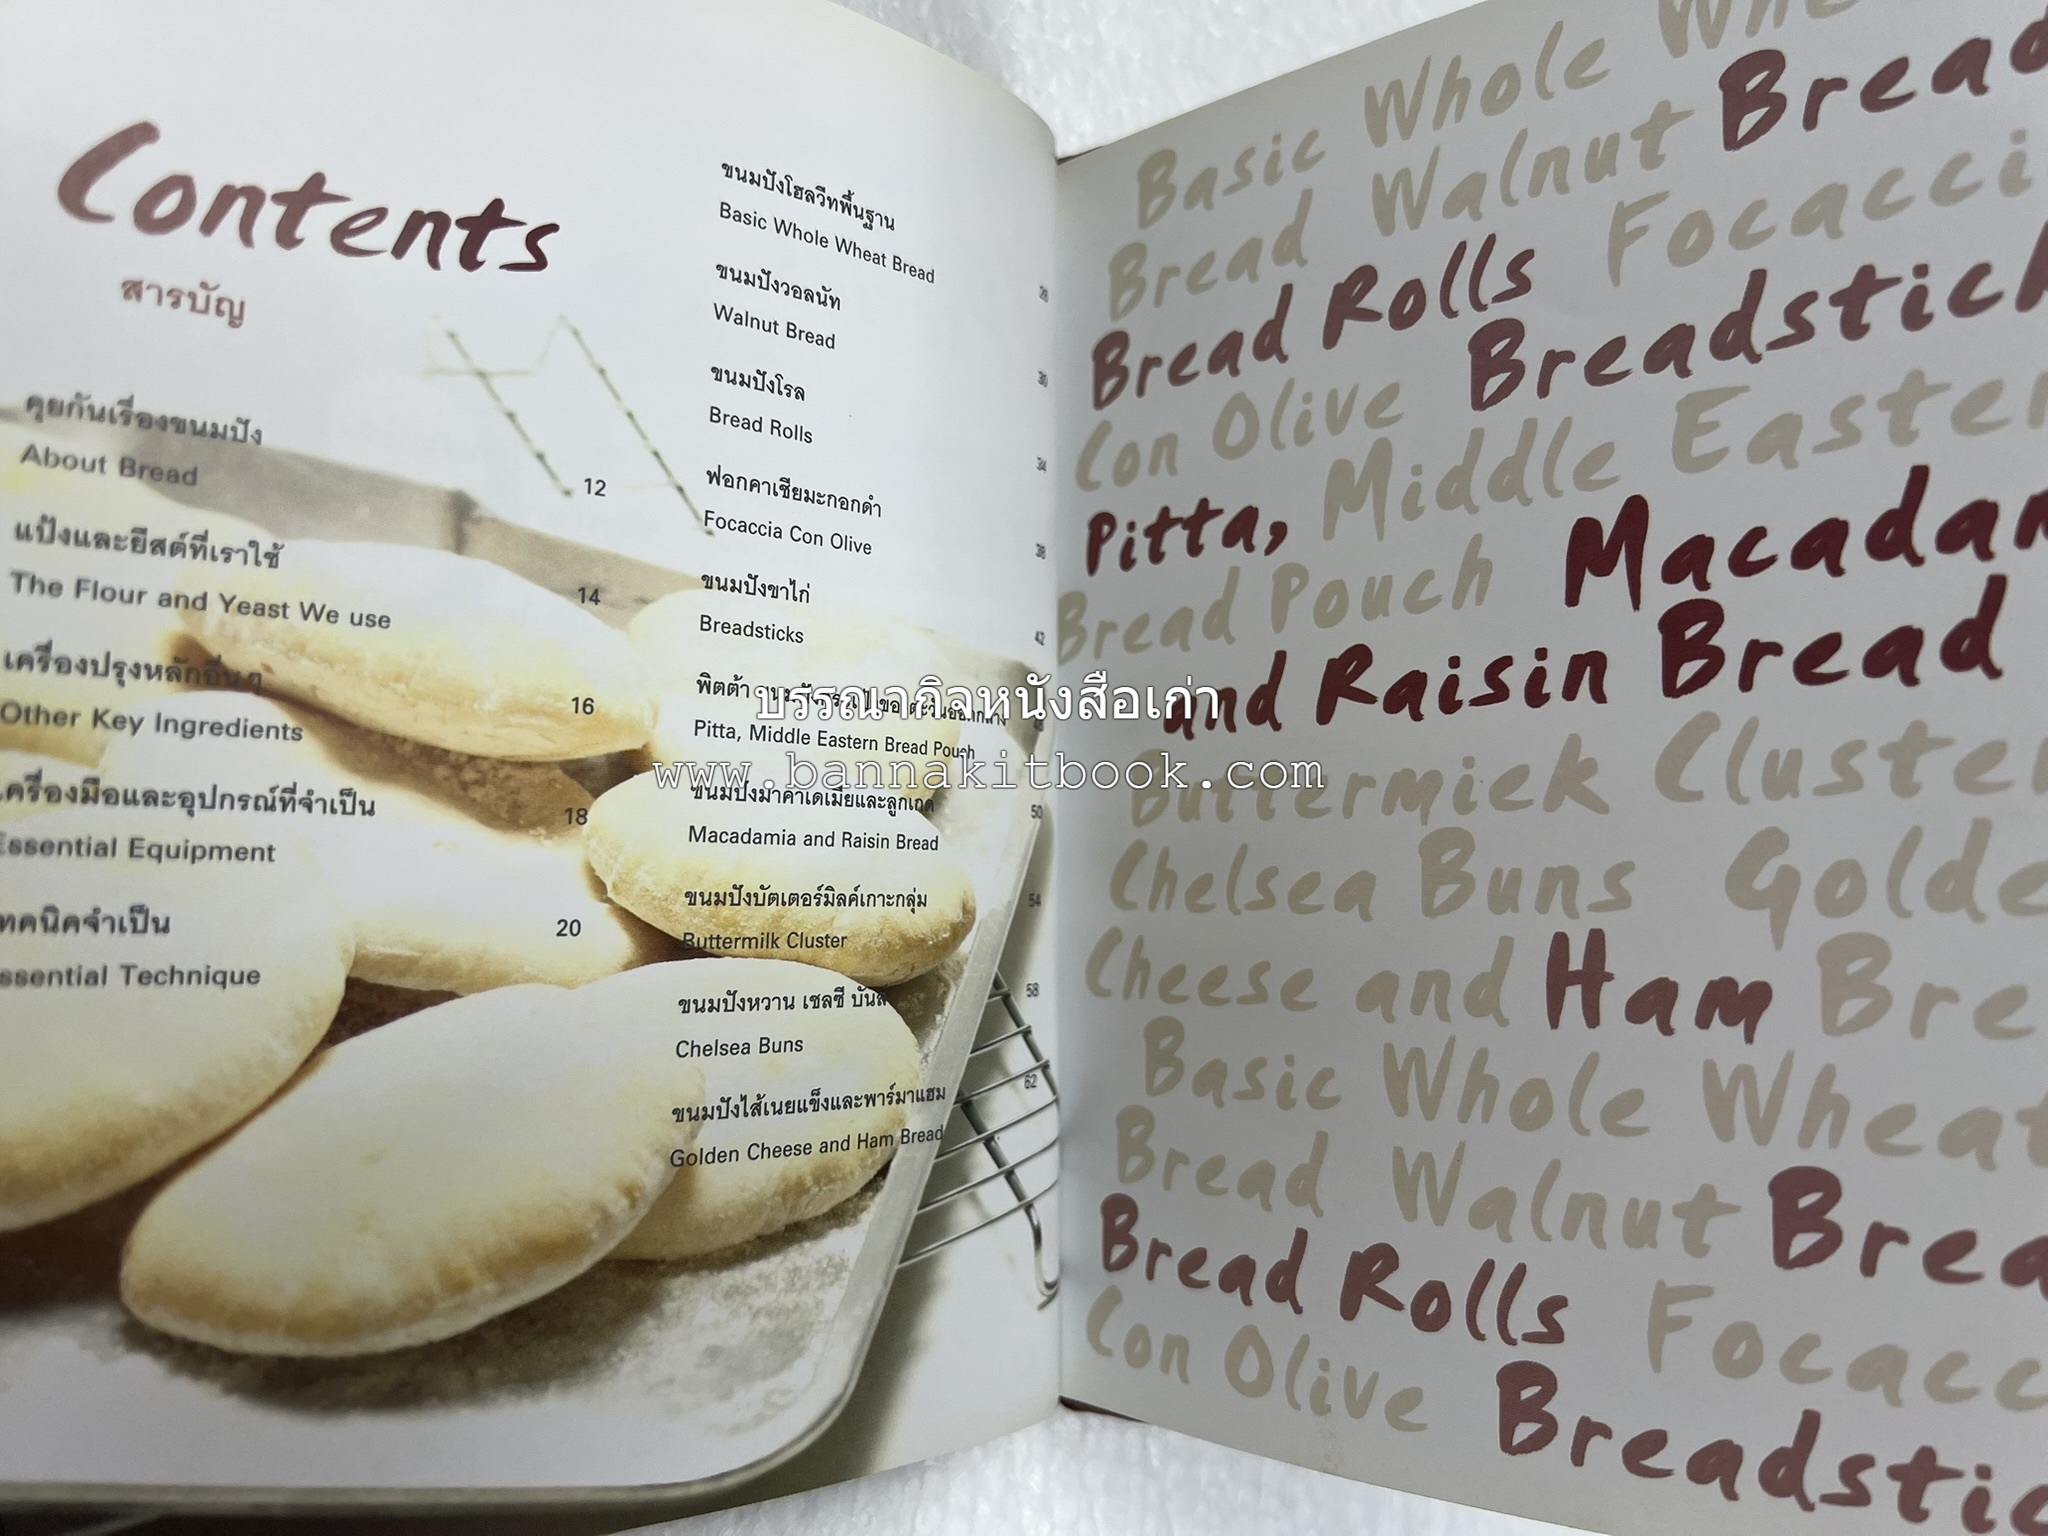 Contents
สารบัญ
คุยกันเรื่องขนมปัง
About Bread
12
แป้งและยีสต์ที่เราใช้
The Flour and Yeast We use
14
เครื่องปรุงหลักอื่นๆ
Other Key Ingredients
16
เครื่องมือและอุปกรณ์ที่จำเป็น
Essential Equipment
18
ทคนิคจำเป็น
ssential Technique
20
ขนมปังโฮลวีทพื้นฐาน
Basic Whole Wheat Bread
28
ขนมปังวอลนัท
Walnut Bread
30
ขนมปังโรล
Bread Rolls
34
ฟอกคาเชียมะกอกดำ
Focaccia Con Olive
38
ขนมปังขาไก่
Breadsticks
42
พิตต้า
Pitta, Middle Eastern Bread Pouch
ขนมปังมาคาเดเมียและลูกเกด
Macadamia and Raisin Bread
50
ขนมปังบัตเตอร์มิลค์เกาะกลุ่ม
Buttermilk Cluster
54
ขนมปังหวาน เชลซี บันส์
Chelsea Buns
58
ขนมปังไส้เนยแข็งและพาร์มาแฮม
Golden Cheese and Ham Bread
62
บรรณากิจหนังสือเก่า
www.bannakitbook.com
Basic Whole Whe
Bread Walnut Bread
Bread Rolls Focacci
Con Olive Breadstick
Pitta, Middle Easter
Bread Pouch Macadam
and Raisin Bread
Buttermiek Cluster
Chelsea Buns Golde
Cheese and Ham Bre
Basic Whole Wheat
Bread Walnut Brea
Bread Rolls Focacc
Con Olive Breadstic